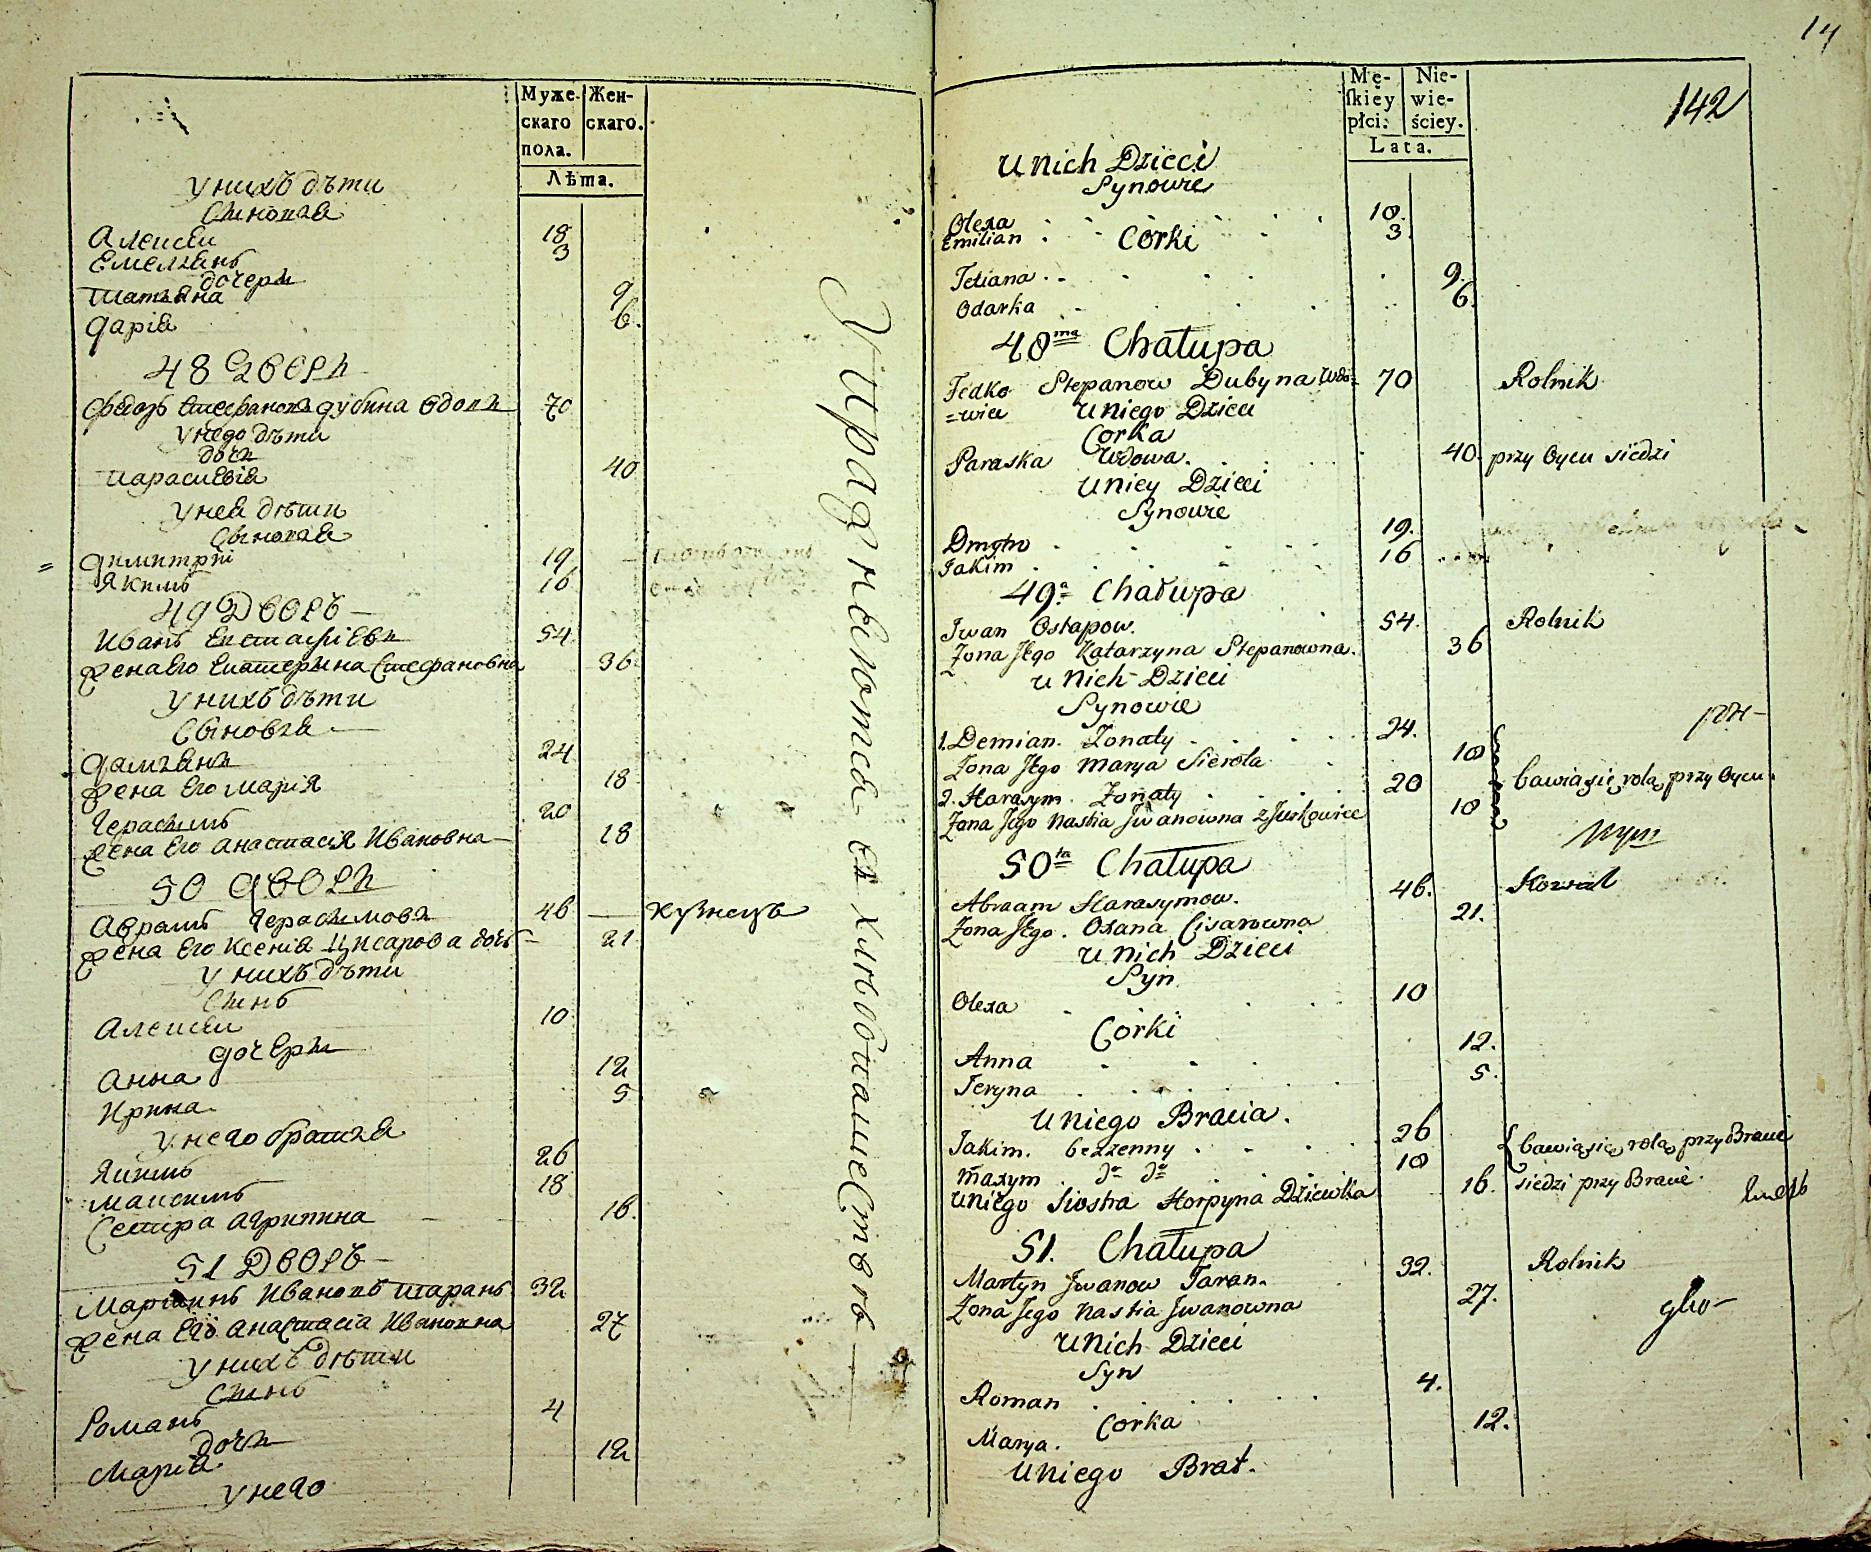 Муже-
скаго
пола.
Жен-
скаго.
Лѣта.
у нихъ дѣти
Сыновья
Алексеи 18
Емельянъ 3
дочери
Татьяна 9
Дарія 6.
48 Дворъ
Федоръ Стефановъ Дубина вдовъ 70
у него дѣти
дочь
Параскевія 40
у неи дѣти
Сыновья
= Димитрій 19
Якимъ 16
49 Дворъ
Иванъ Евстафіевъ 54
Жена Его Екатерина Стефановна 36
у нихъ дѣти
Сыновья
Дамьянъ 24
Жена Его Марія 18
Герасимъ 20
Жена Его Анастасія Ивановна 18
50 Дворъ
Аврамъ Герасимовъ 46 — кузнецъ
Жена Его Ксенія Цисарова дочь 21
у нихъ дѣти
Сынъ
Алексеи 10
дочери
Анна 12
Ирина 5
у него братья
Якимъ 26
Максимъ 18
Сестра Агрипина 16.
51 Дворъ
Мартинъ Ивановъ Таранъ 32
Жена Его Анастасіа Ивановна 27
у нихъ дѣти
Сынъ
Романъ 4
дочь
Марія 12
у него
Упражняются въ хлѣбопашествѣ
14
142
Mę-
skiéy
płci.
Nie-
wie-
ściey.
Lata.
U nich Dzieci
Synowie
Olexa 18.
Emilian 3.
Corki
Tetiana 9.
Odarka 6.
48ma Chałupa
Fedko Stepanow Dubyna Wdo= 70 Rolnik
=wiec U niego Dzieci
Corka
Paraska Wdowa. 40. przy Oycu siedzi
U niey Dzieci
Synowie
Dmytro 19.
Jakim 16
49a Chałupa
Jwan Ostapow. 54. Rolnik
Zona Jego Katarzyna Stepanowna. 36
u Nich Dzieci
Synowie
1. Demian. Zonaty 24.
Zona Jego Marya Sierota 18
2. Harasym. Zonaty 20 bawią się rolą przy Oycu.
Zona Jego Nastia Jwanowna z Jurkowiec 18
50ta Chałupa
Abraam Harasymow. 46. Kowal
Zona Jego. Oxana Cisarowna 21.
u nich Dzieci
Syn
Olexa 10
Corki
Anna 12.
Jeryna 5.
U niego Bracia.
Jakim. bezżenny 26 bawią się rolą przy Bracie
Maxym do do 18
U niego Siostra Horpyna Dziewka 16. siedzi przy Bracie.
51. Chałupa
Martyn Jwanow Taran. 32. Rolnik
Zona Jego Nastia Jwanowna 27.
U nich Dzieci
Syn
Roman 4.
Corka
Marya. 12.
U niego Brat.